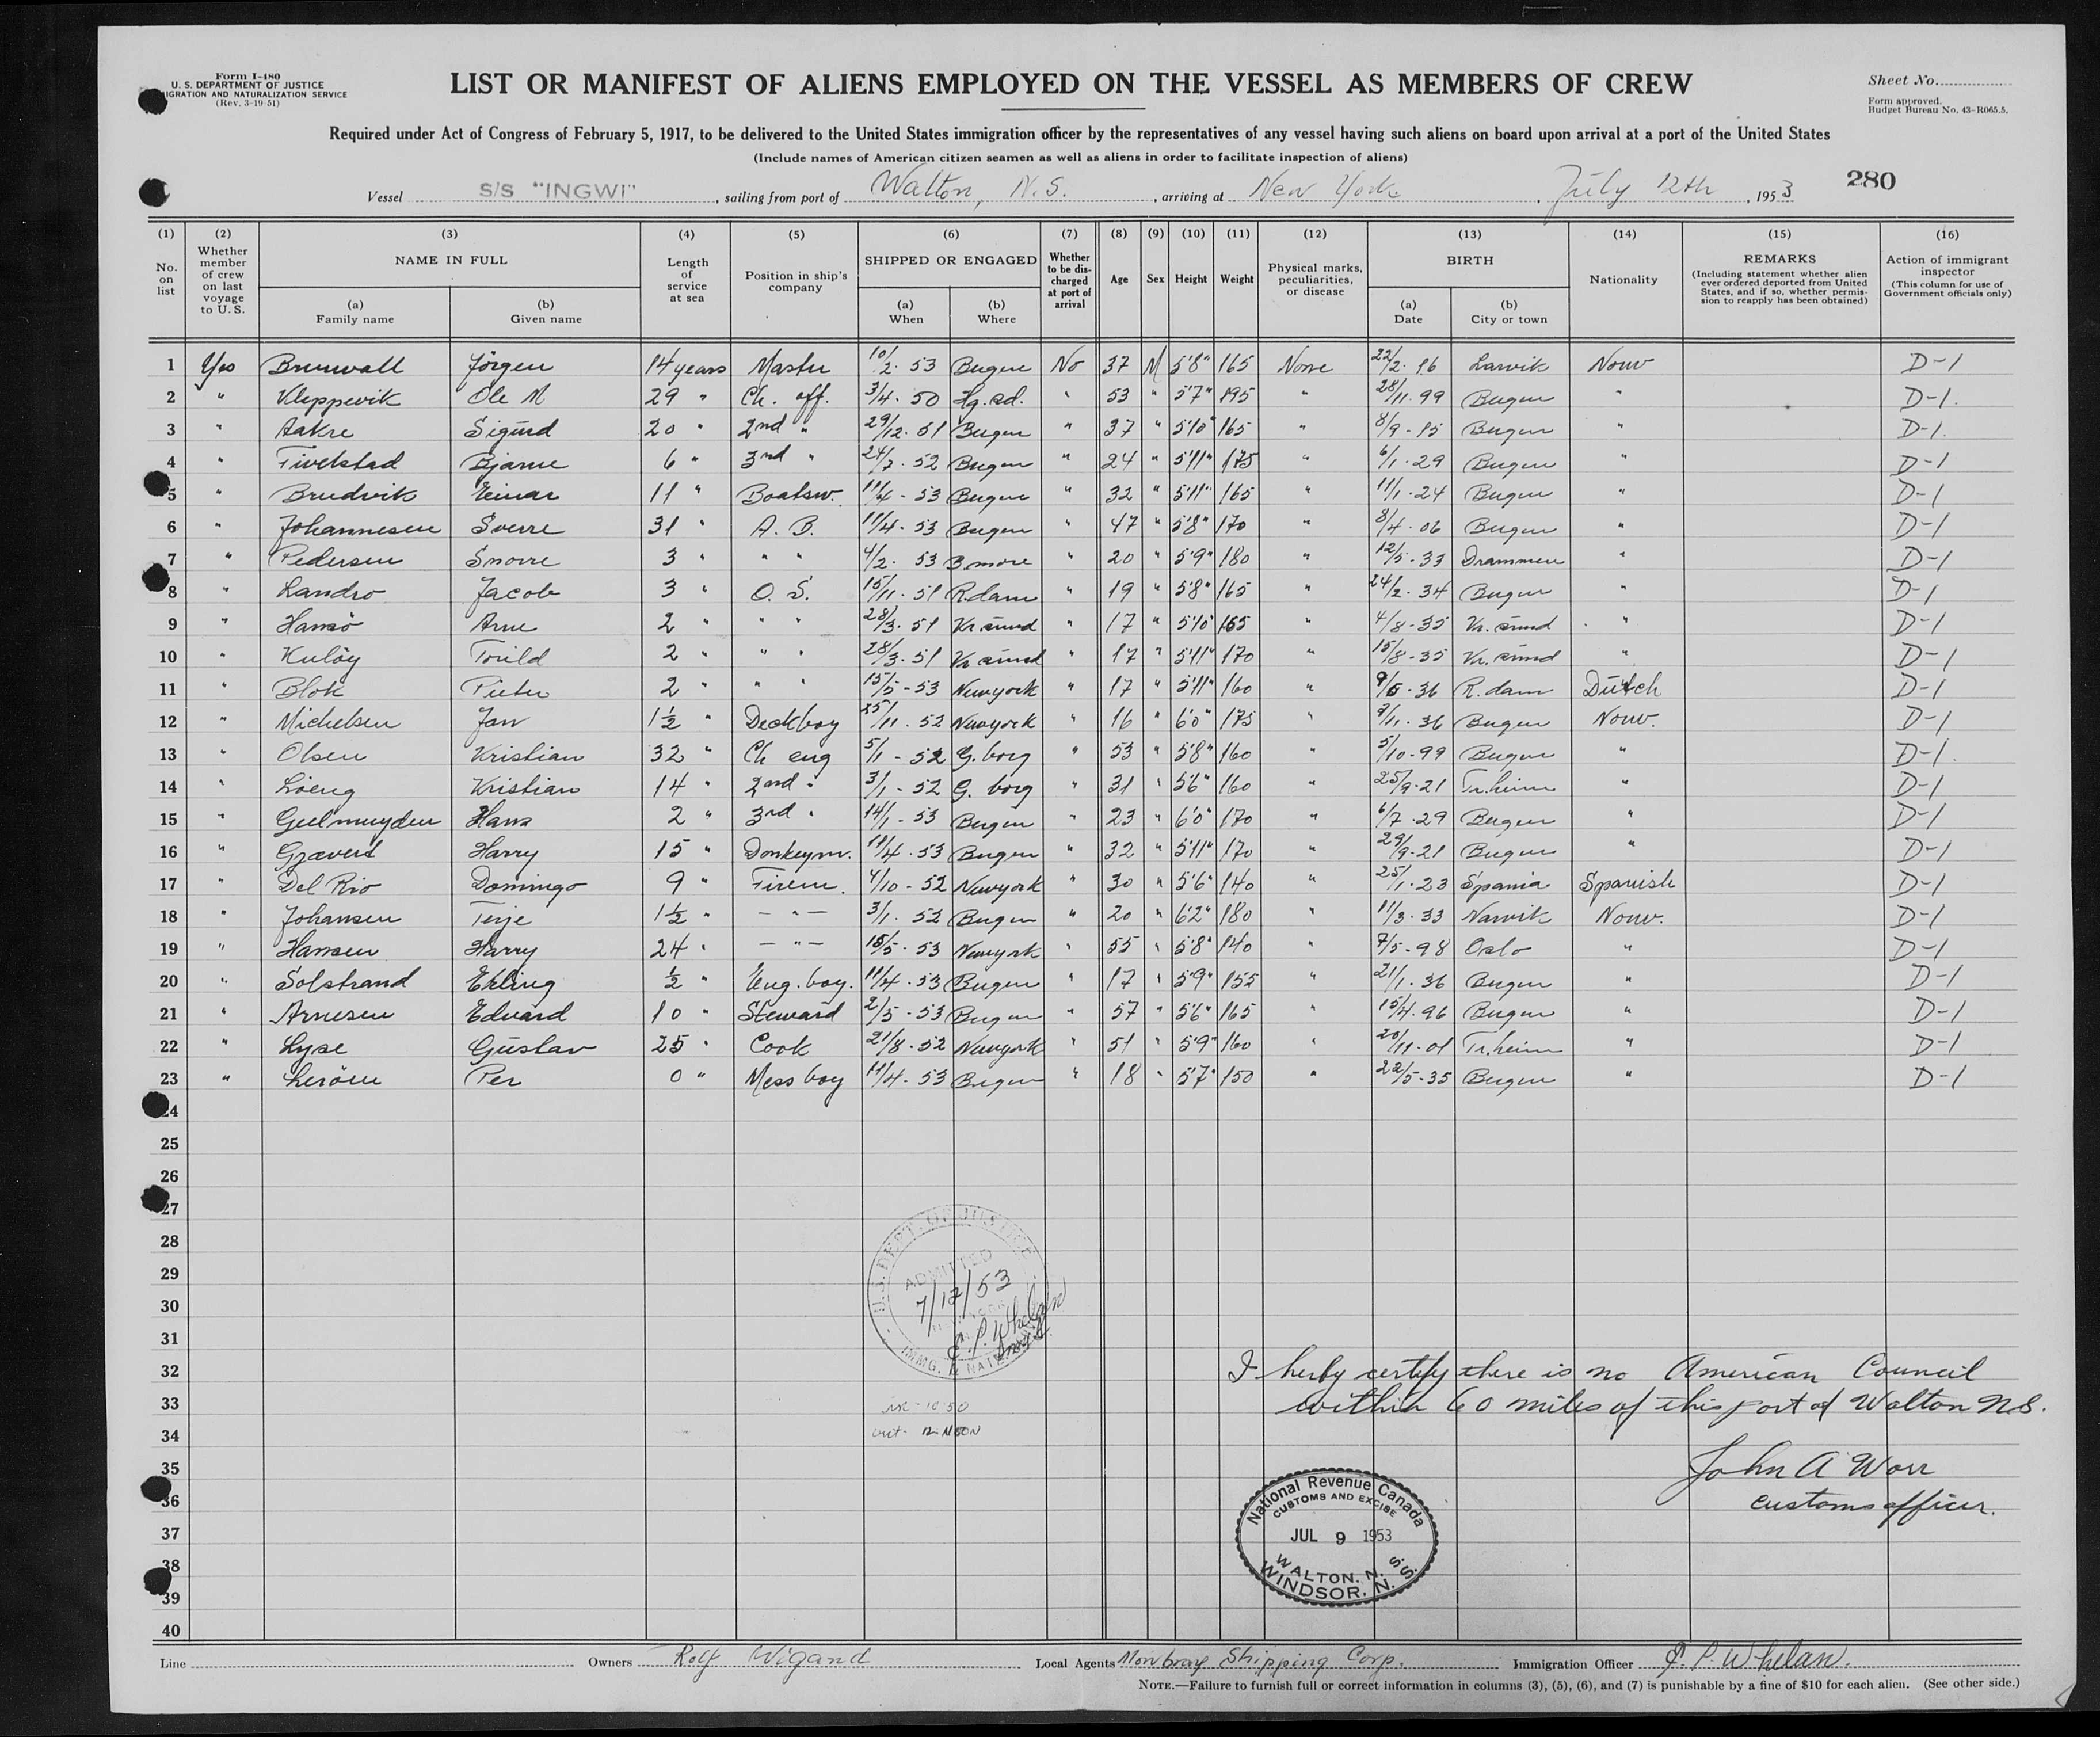 Form I-480
U. S. DEPARTMENT OF JUSTICE
IGRATION AND NATURALIZATION SERVICE
(Rev. 3-19-51)
LIST OR MANIFEST OF ALIENS EMPLOYED ON THE VESSEL AS MEMBERS OF CREW
Sheet No.
Form approved.
Budget Bureau No. 43-R065.5.
Required under Act of Congress of February 5, 1917, to be delivered to the United States immigration officer by the representatives of any vessel having such aliens on board upon arrival at a port of the United States
(Include names of American citizen seamen as well as aliens in order to facilitate inspection of aliens)
Vessel S/S "INGWI", sailing from port of Walton, N.S., arriving at New York, July 12th, 1953
280
(1) No. on list
(2) Whether member of crew on last voyage to U. S.
(3) NAME IN FULL (a) Family name (b) Given name
(4) Length of service at sea
(5) Position in ship's company
(6) SHIPPED OR ENGAGED (a) When (b) Where
(7) Whether to be discharged at port of arrival
(8) Age
(9) Sex
(10) Height
(11) Weight
(12) Physical marks, peculiarities, or disease
(13) BIRTH (a) Date (b) City or town
(14) Nationality
(15) REMARKS (Including statement whether alien ever ordered deported from United States, and if so, whether permission to reapply has been obtained)
(16) Action of immigrant inspector (This column for use of Government officials only)
1 Yes Brunvall Jörgen 14 years Master 10/2. 53 Bergen No 37 M 5'8" 165 None 22/2. 16 Larvik Norw D-1
2 " Kleppevik Ole M 29 " Ch. off. 3/4. 50 " 53 " 5'7" 195 " 28/11. 99 Bergen " D-1.
3 " Aakre Sigurd 20 " 2nd " 29/12. 51 Bergen " 37 " 5'10" 165 " 8/9 - 15 Bergen " D-1.
4 " Tivelstad Bjarne 6 " 3rd " 24/7. 52 Bergen " 24 " 5'11" 175 " 6/1. 29 Bergen " D-1
5 " Brudvik Einar 11 " Boatsw. 11/4 - 53 Bergen " 32 " 5'11" 165 " 11/1. 24 Bergen " D-1
6 " Johannesen Sverre 31 " A. B. 11/4. 53 Bergen " 47 " 5'8" 170 " 8/4. 06 Bergen " D-1
7 " Pedersen Snorre 3 " " " 4/2. 53 B.more " 20 " 5'9" 180 " 12/5. 33 Drammen " D-1
8 " Landro Jacob 3 " O. S. 15/11. 51 R.dam " 19 " 5'8" 165 " 24/2. 34 Bergen " D-1
9 " Hamsö Arne 2 " " " 28/3. 51 Kr.sund " 17 " 5'10" 165 4/8 - 35 Kr. sund " D-1
10 " Kulöy Torild 2 " " " 28/3. 51 Kr sund " 17 " 5'11" 170 " 15/8 - 35 Kr. sund " D-1
11 " Blok Pieter 2 " " " 15/5 - 53 Newyork " 17 " 5'11" 160 " 9/5 - 36 R. dam Dutch D-1
12 " Michelsen Jan 1½ " Deckboy 25/11. 52 Newyork " 16 " 6'0" 175 " 9/11. 36 Bergen Norw. D-1
13 " Olsen Kristian 32 " Ch eng 5/1 - 52 G. borg " 53 " 5'8" 160 " 5/10 - 99 Bergen " D-1.
14 " Loeng Kristian 14 " 2nd " 3/1 - 52 G. borg " 31 " 5'6" 160 " 25/9 - 21 Tr.heim " D-1
15 " Geelmuyden Hans 2 " 3rd " 14/1 - 53 Bergen " 23 " 6'0" 170 " 6/7. 29 Bergen " D-1
16 " Grævert Harry 15 " Donkeym. 11/4. 53 Bergen " 32 " 5'11" 170 " 29/9 - 21 Bergen " D-1
17 " Del Rio Domingo 9 " Firem. 4/10 - 52 Newyork " 30 " 5'6" 140 " 25/1. 23 Spania Spanish D-1
18 " Johansen Terje 1½ " - " - 3/1. 52 Bergen " 20 " 6'2" 180 " 11/3. 33 Narvik Norw. D-1
19 " Hansen Harry 24 " - " - 15/5. 53 Newyork " 55 " 5'8" 140 " 7/5 - 98 Oslo " D-1
20 " Solstrand Erling ½ " Eng. boy. 11/4. 53 Bergen " 17 " 5'9" 155 " 21/1. 36 Bergen " D-1
21 " Arnesen Edvard 10 " Steward 2/5 - 53 Bergen " 57 " 5'6" 165 " 15/4. 96 Bergen " D-1
22 " Lyse Gustav 25 " Cook 21/8. 52 Newyork " 51 " 5'9" 160 " 20/11 - 01 Tr.heim " D-1
23 " Leröen Per 0 " Mess boy 11/4. 53 Bergen " 18 " 5'7" 150 " 22/5 - 35 Bergen " D-1
24
25
26
27
28
29
30
31
32
33
34
35
36
37
38
39
40
U. S. DEPT. OF JUSTICE
ADMITTED
7/12/53
E. P. Whelan
IMMG. & NATZ.
- 10:50
out - 12 NOON
I herby certify there is no American Council
within 60 miles of this port of Walton N.S.
John A Worr
customs officer.
National Revenue Canada
CUSTOMS AND EXCISE
JUL 9 1953
WALTON. N. S.
WINDSOR. N. S.
Line
Owners Rolf Wigand
Local Agents Mowbray Shipping Corp.
Immigration Officer E. P. Whelan.
NOTE.—Failure to furnish full or correct information in columns (3), (5), (6), and (7) is punishable by a fine of $10 for each alien. (See other side.)